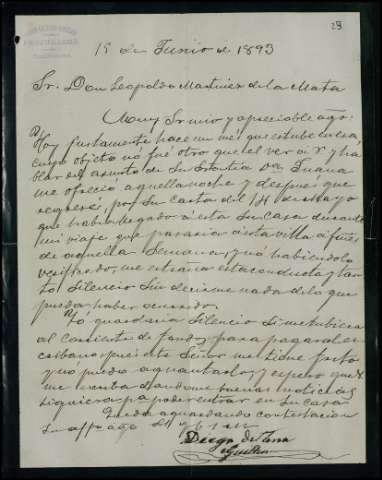 23
15 de Junio de 1893
Sr. Don Leopoldo Martinez de la Mata
Muy Sr mio y apreciable ago:
Hoy justamente hace un mes que estube en esa,
cuyo objeto no fué otro que el ver á V. y ha
blar del asunto de su Tia Dña Juana
me ofreció aquella noche y despues que
regresé, por su carta del 14 de Mayo
que habia llegado á esta su Casa durante
mi viaje que pasaria á esta villa á fines
de aquella Semana, y nó habiendolo
verificado, me extraña esta conducta y tan
to silencio sin decirme nada de lo que
pueda haber ocurrido.
Yó guardaria Silencio si me tubiera
al corriente de fondos para pagar al es
cribano pues este Señor me tiene frito
y nó puedo aguantarlo, y espero que V.
me escriba dandome buenas noticias
siquiera pa poder entrar en su casa
Queda aguardando contestacion
su affmo ago
Diego de
Guillen